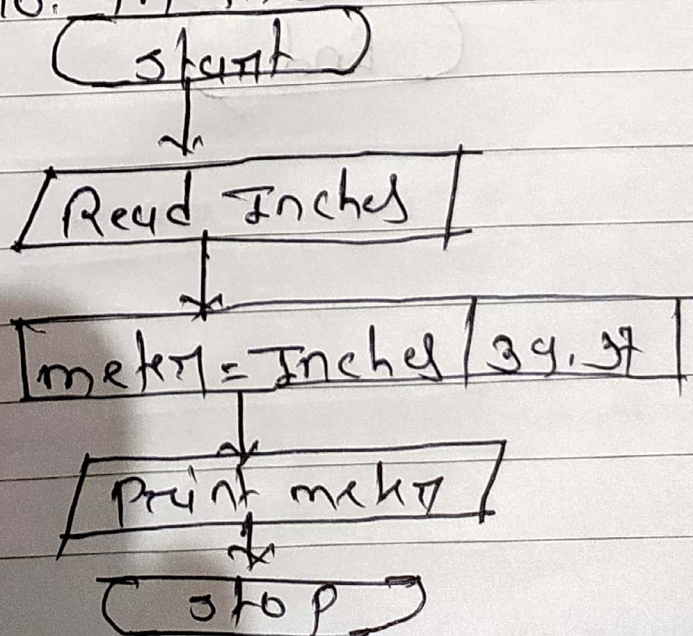 start
Read Inches
meter = Inches / 39.37
Print meter
stop